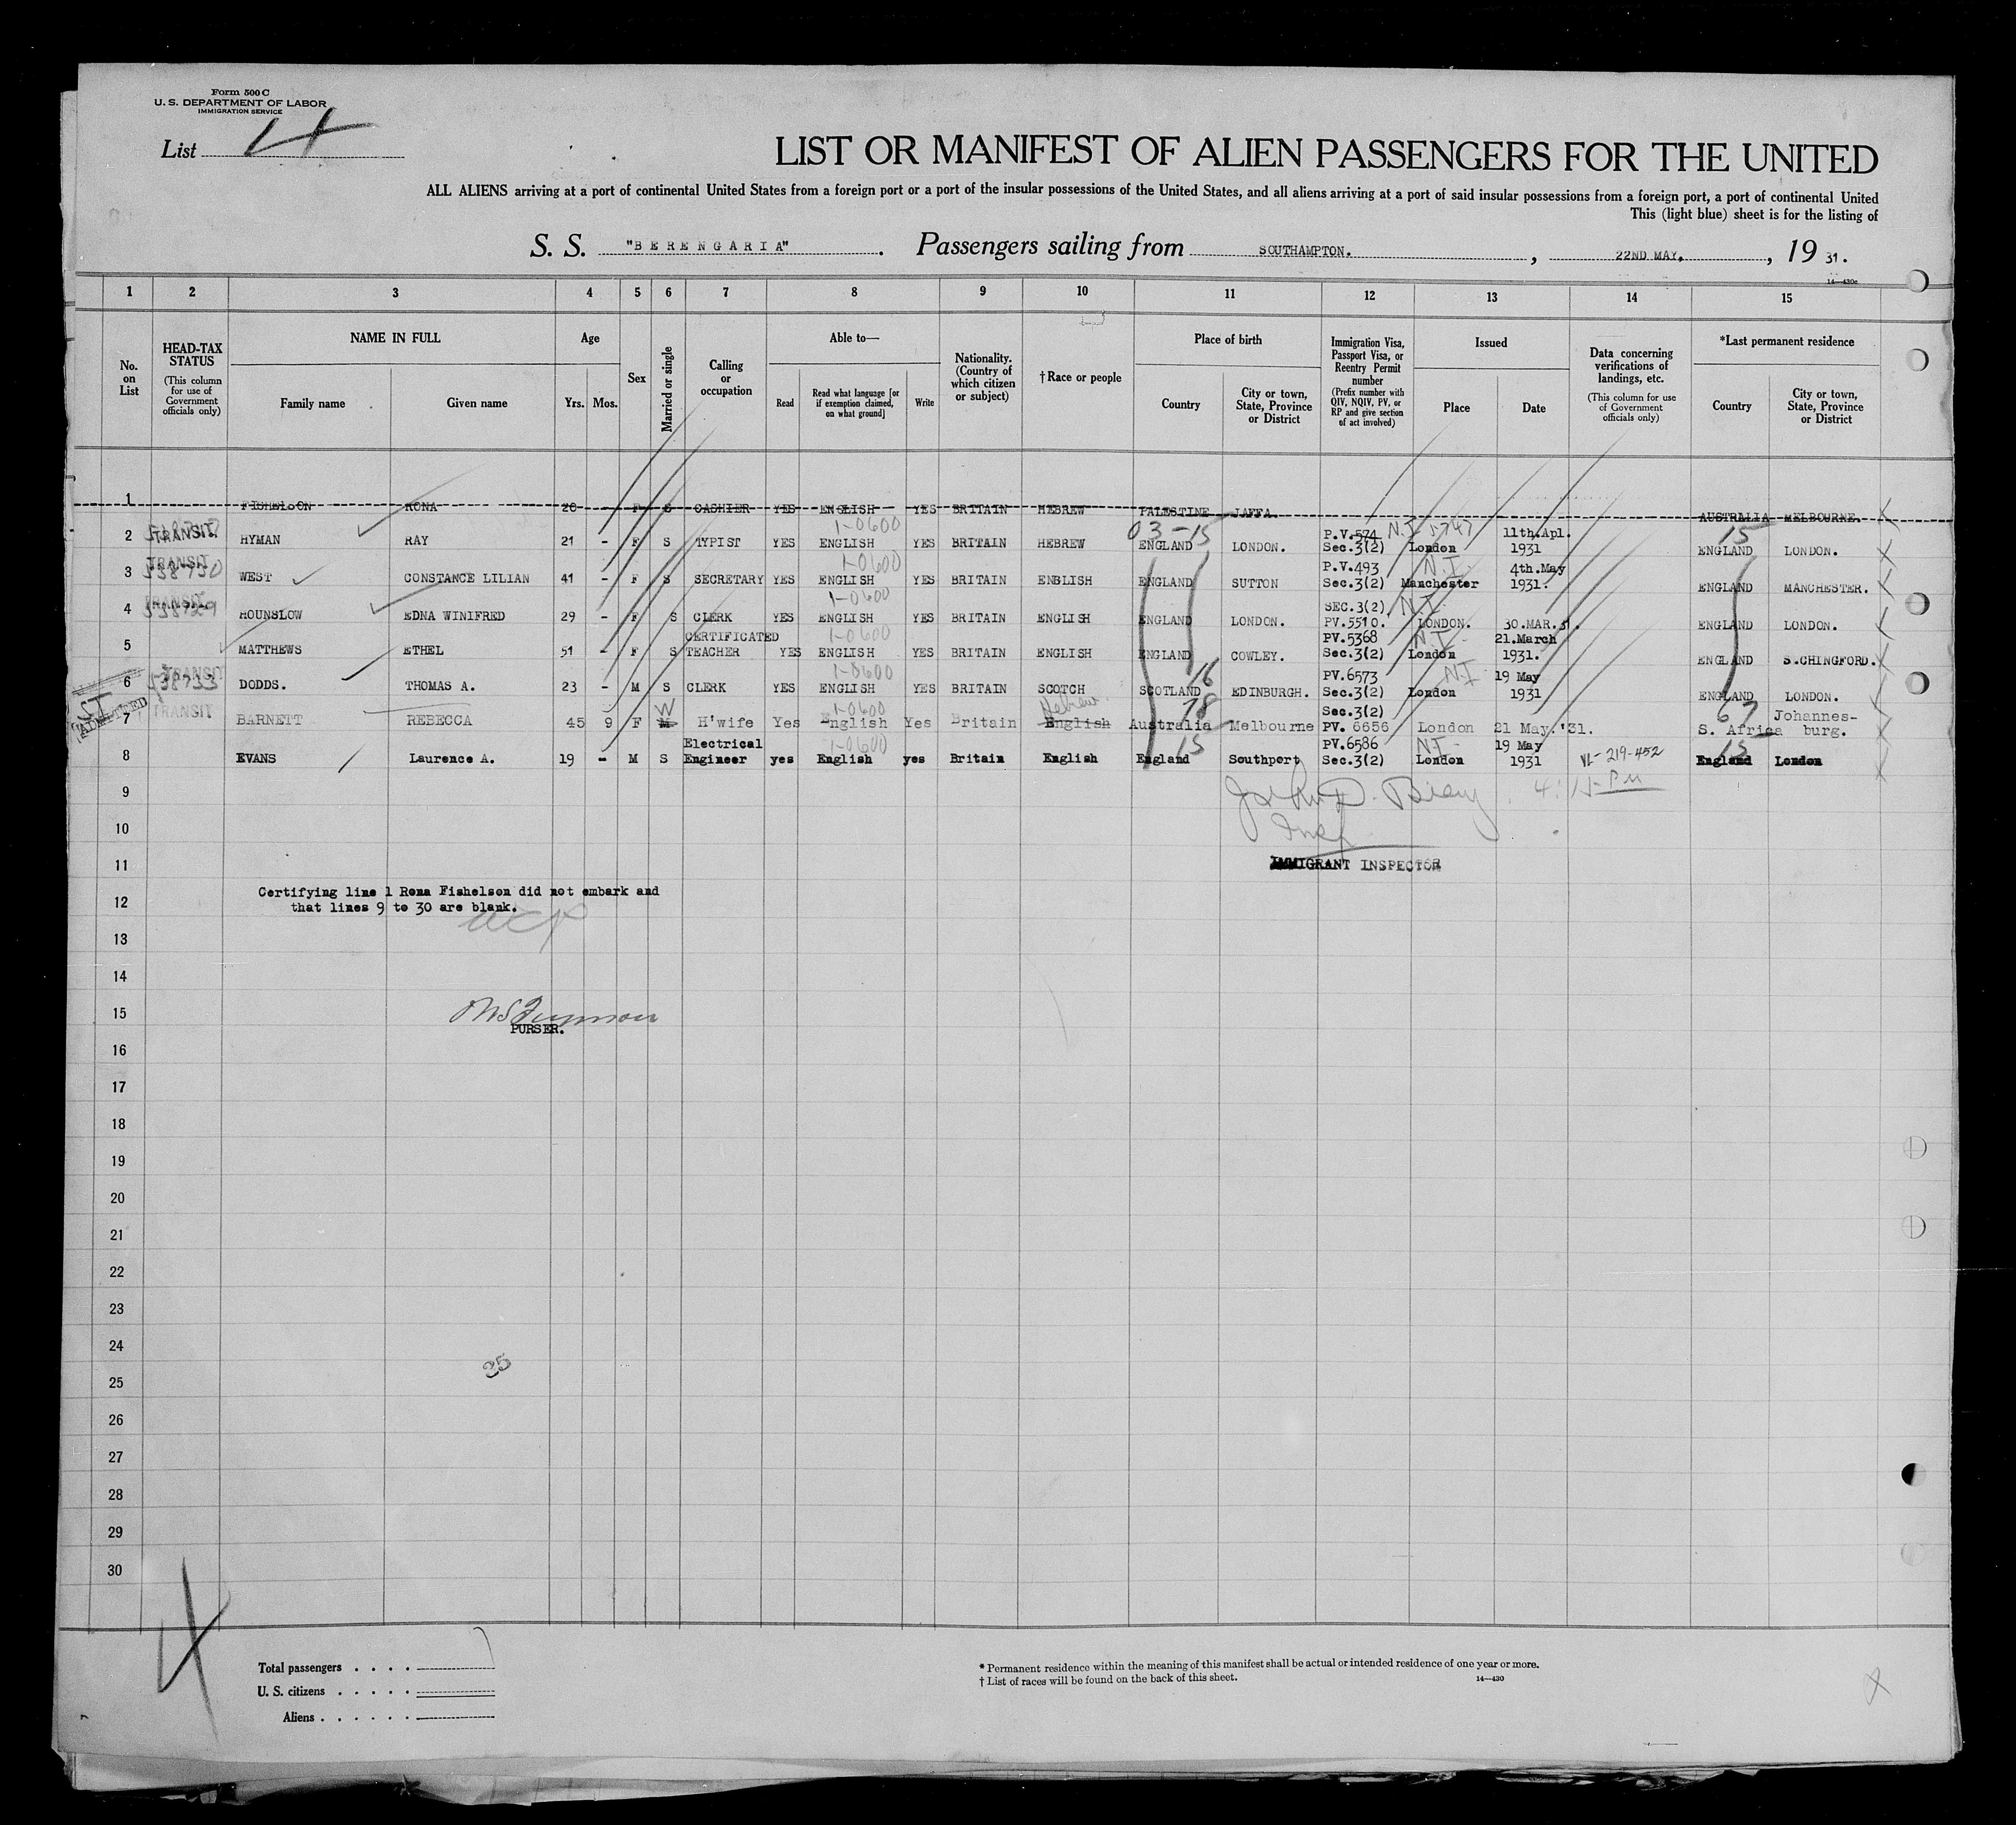 Form 500 C
U. S. DEPARTMENT OF LABOR
IMMIGRATION SERVICE
List 4
LIST OR MANIFEST OF ALIEN PASSENGERS FOR THE UNITED
ALL ALIENS arriving at a port of continental United States from a foreign port or a port of the insular possessions of the United States, and all aliens arriving at a port of said insular possessions from a foreign port, a port of continental United
This (light blue) sheet is for the listing of
S. S. "BERENGARIA". Passengers sailing from SOUTHAMPTON., 22ND MAY., 19 31.
14—430c
1 2 3 4 5 6 7 8 9 10 11 12 13 14 15
No. on List
HEAD-TAX STATUS
(This column for use of Government officials only)
NAME IN FULL
Family name Given name
Age
Yrs. Mos.
Sex
Married or single
Calling or occupation
Able to—
Read
Read what language [or if exemption claimed, on what ground]
Write
Nationality. (Country of which citizen or subject)
† Race or people
Place of birth
Country
City or town, State, Province or District
Immigration Visa, Passport Visa, or Reentry Permit number
(Prefix number with QIV, NQIV, PV, or RP and give section of act involved)
Issued
Place Date
Data concerning verifications of landings, etc.
(This column for use of Government officials only)
*Last permanent residence
Country
City or town, State, Province or District
1 FISHELSON RONA 20 - F S CASHIER YES ENGLISH YES BRITAIN HEBREW PALESTINE JAFFA AUSTRALIA MELBOURNE.
TRANSIT 1-0600 03-15 P.V.574 N.I 5747 11th.Apl. 15
2 HYMAN RAY 21 - F S TYPIST YES ENGLISH YES BRITAIN HEBREW ENGLAND LONDON. Sec.3(2) London 1931 ENGLAND LONDON.
TRANSIT 538730 1-0600 P.V.493 N.I 4th.May
3 WEST CONSTANCE LILIAN 41 - F S SECRETARY YES ENGLISH YES BRITAIN ENBLISH ENGLAND SUTTON Sec.3(2) Manchester 1931. ENGLAND MANCHESTER.
TRANSIT 538729 1-0600 SEC.3(2) N.I
4 HOUNSLOW EDNA WINIFRED 29 - F S CLERK YES ENGLISH YES BRITAIN ENGLISH ENGLAND LONDON. PV.5510. LONDON. 30.MAR.31. ENGLAND LONDON.
CERTIFICATED 1-0600 PV.5368 N.I 21.March
5 MATTHEWS ETHEL 51 - F S TEACHER YES ENGLISH YES BRITAIN ENGLISH ENGLAND COWLEY. Sec.3(2) London 1931. ENGLAND S.CHINGFORD.
TRANSIT 538733 1-0600 16 PV.6573 N.I 19 May
6 DODDS. THOMAS A. 23 - M S CLERK YES ENGLISH YES BRITAIN SCOTCH SCOTLAND EDINBURGH. Sec.3(2) London 1931 ENGLAND LONDON.
SI ADMITTED TRANSIT W 1-0600 Hebrew 78 Sec.3(2) 67 Johannes-
7 BARNETT REBECCA 45 9 F M H'wife Yes English Yes Britain English Australia Melbourne PV. 6656 London 21 May.'31. S. Africa burg.
Electrical 1-0600 15 PV.6586 N.I 19 May VL-219-452 15
8 EVANS Laurence A. 19 - M S Engineer yes English yes Britain English England Southport Sec.3(2) London 1931 England London
9
John D. 4:15 PM
10
Insp
11
IMMIGRANT INSPECTOR
Certifying line 1 Rona Fishelson did not embark and
12
that lines 9 to 30 are blank.
13
14
15
PURSER.
16
17
18
19
20
21
22
23
24
35
25
26
27
28
29
30
4
Total passengers . . . .
U. S. citizens . . . . .
Aliens . . . . . .
* Permanent residence within the meaning of this manifest shall be actual or intended residence of one year or more.
† List of races will be found on the back of this sheet.
14—430